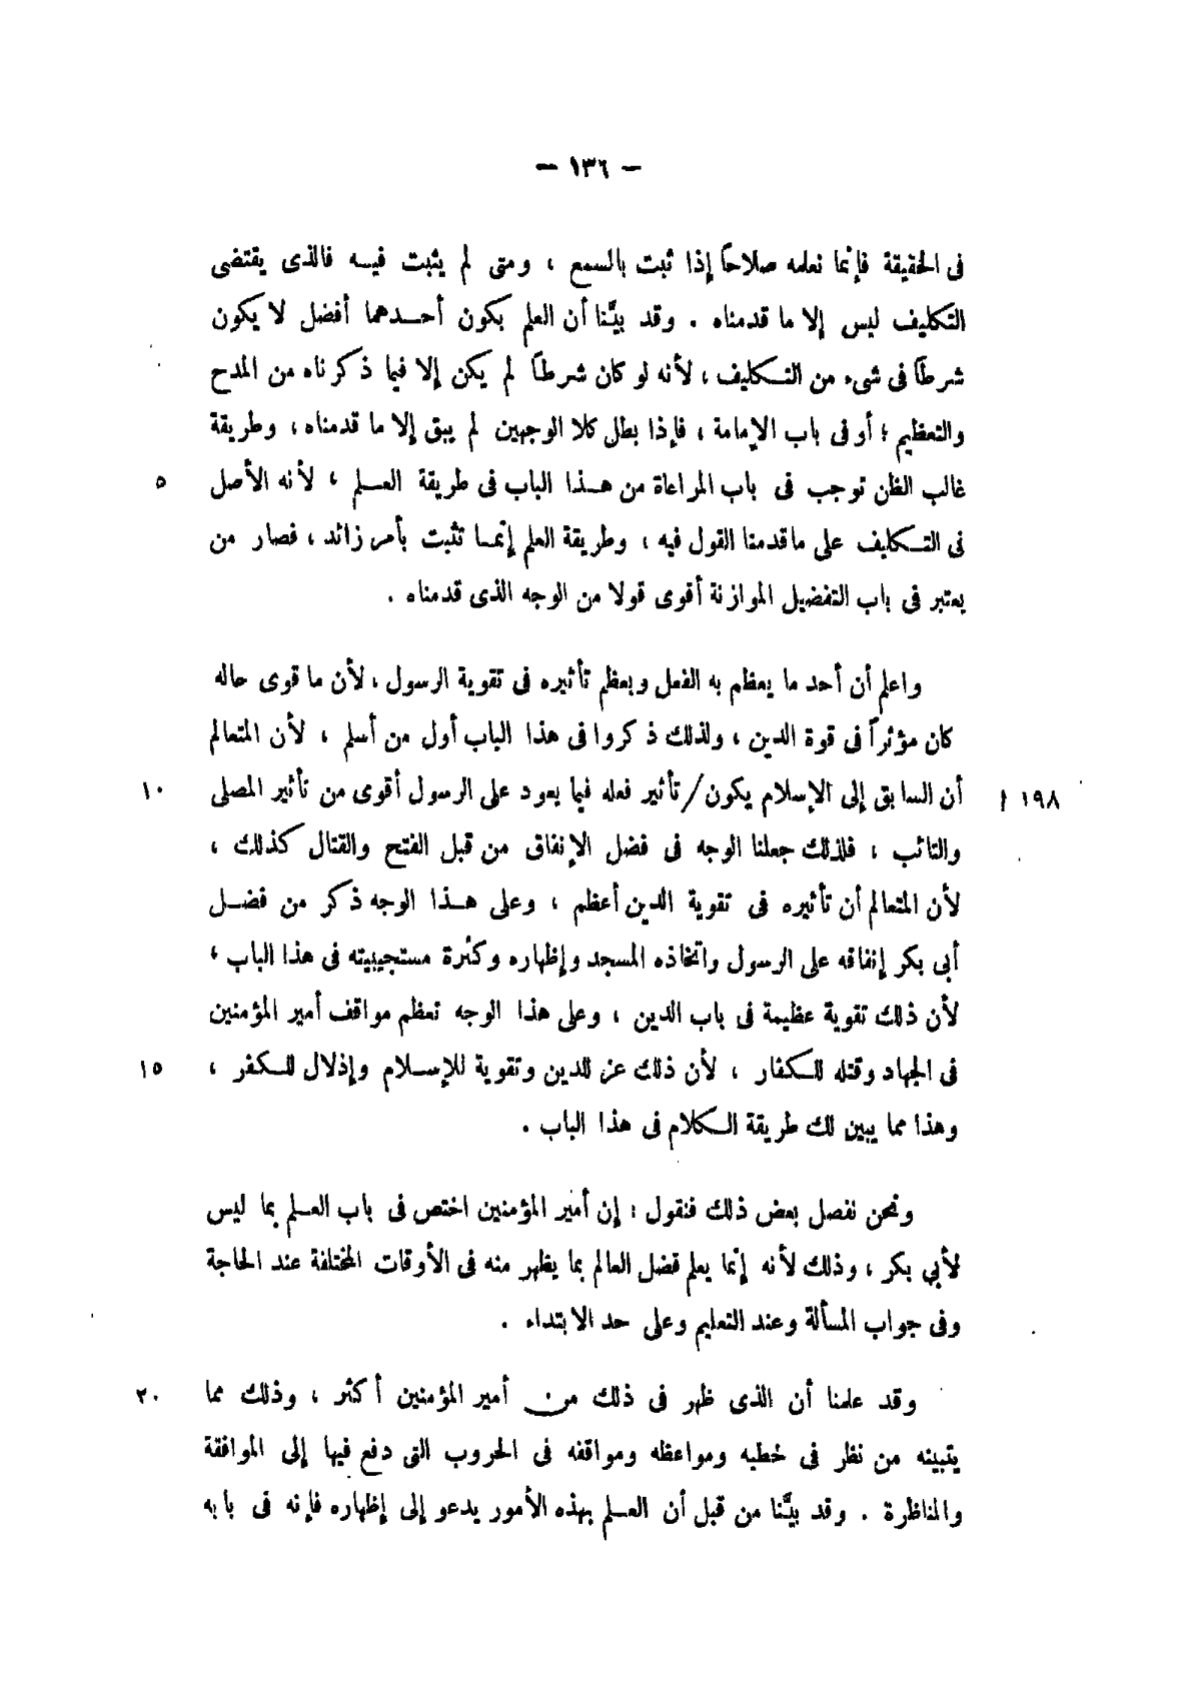 — ١٣٦ —
فى الحقيقة فإنما نعلمه صلاحاً إذا ثبت بالسمع ، ومتى لم يثبت فيـه فالذى يقتضى
التكليف ليس إلا ما قدمناه . وقد بيَّنا أن العلم بكون أحـدهما أفضل لا يكون
شرطاً فى شىء من التـكليف ، لأنه لو كان شرطاً لم يكن إلا فيما ذكرناه من المدح
والتعظيم ؛ أو فى باب الإمامة ، فإذا بطل كلا الوجهين لم يبق إلا ما قدمناه ، وطريقة
غالب الظن توجب فى باب المراعاة من هـذا الباب فى طريقة العـلم ، لأنه الأصل ٥
فى التـكليف على ماقدمنا القول فيه ، وطريقة العلم إنمـا تثبت بأمر زائد ، فصار من
يعتبر فى باب التفضيل الموازنة أقوى قولا من الوجه الذى قدمناه .
واعلم أن أحد ما يعظم به الفعل ويعظم تأثيره فى تقوية الرسول ، لأن ما قوى حاله
كان مؤثراً فى قوة الدين ، ولذلك ذكروا فى هذا الباب أول من أسلم ، لأن المتعالم
١٩٨ ا أن السابق إلى الإسلام يكون/تأثير فعله فيما يعود على الرسول أقوى من تأثير المصلى ١٠
والتائب ، فلذلك جعلنا الوجه فى فضل الإنفاق من قبل الفتح والقتال كذلك ،
لأن المتعالم أن تأثيره فى تقوية الدين أعظم ، وعلى هـذا الوجه ذكر من فضـل
أبى بكر إنفاقه على الرسول واتخاذه المسجد وإظهاره وكثرة مستجيبيته فى هذا الباب ،
لأن ذلك تقوية عظيمة فى باب الدين ، وعلى هذا الوجه تعظم مواقف أمير المؤمنين
فى الجهاد وقتله للـكفار ، لأن ذلك عز للدين وتقوية للإسـلام وإذلال للـكفر ، ١٥
وهذا مما يبين لك طريقة الـكلام فى هذا الباب .
ونحن نفصل بعض ذلك فنقول : إن أمير المؤمنين اختص فى باب العـلم بما ليس
لأبى بكر ، وذلك لأنه إنما يعلم فضل العالم بما يظهر منه فى الأوقات المختلفة عند الحاجة
وفى جواب المسألة وعند التعليم وعلى حد الابتداء .
وقد علمنا أن الذى ظهر فى ذلك من أمير المؤمنين أكثر ، وذلك مما ٢٠
يتبينه من نظر فى خطبه ومواعظه ومواقفه فى الحروب التى دفع فيها إلى الموافقة
والمناظرة . وقد بيَّنا من قبل أن العـلم بهذه الأمور يدعو إلى إظهاره فإنه فى بابه